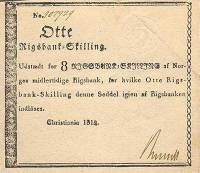 No.
Otte
Rigsbank-Skilling.
Udstædt for 8 RIGSBANK-SKILLING af Nor-
ges midlertidige Rigsbank, for hvilke Otte Rigs-
bank-Skilling denne Seddel igien af Rigsbanken
indløses.
Christiania 1814.